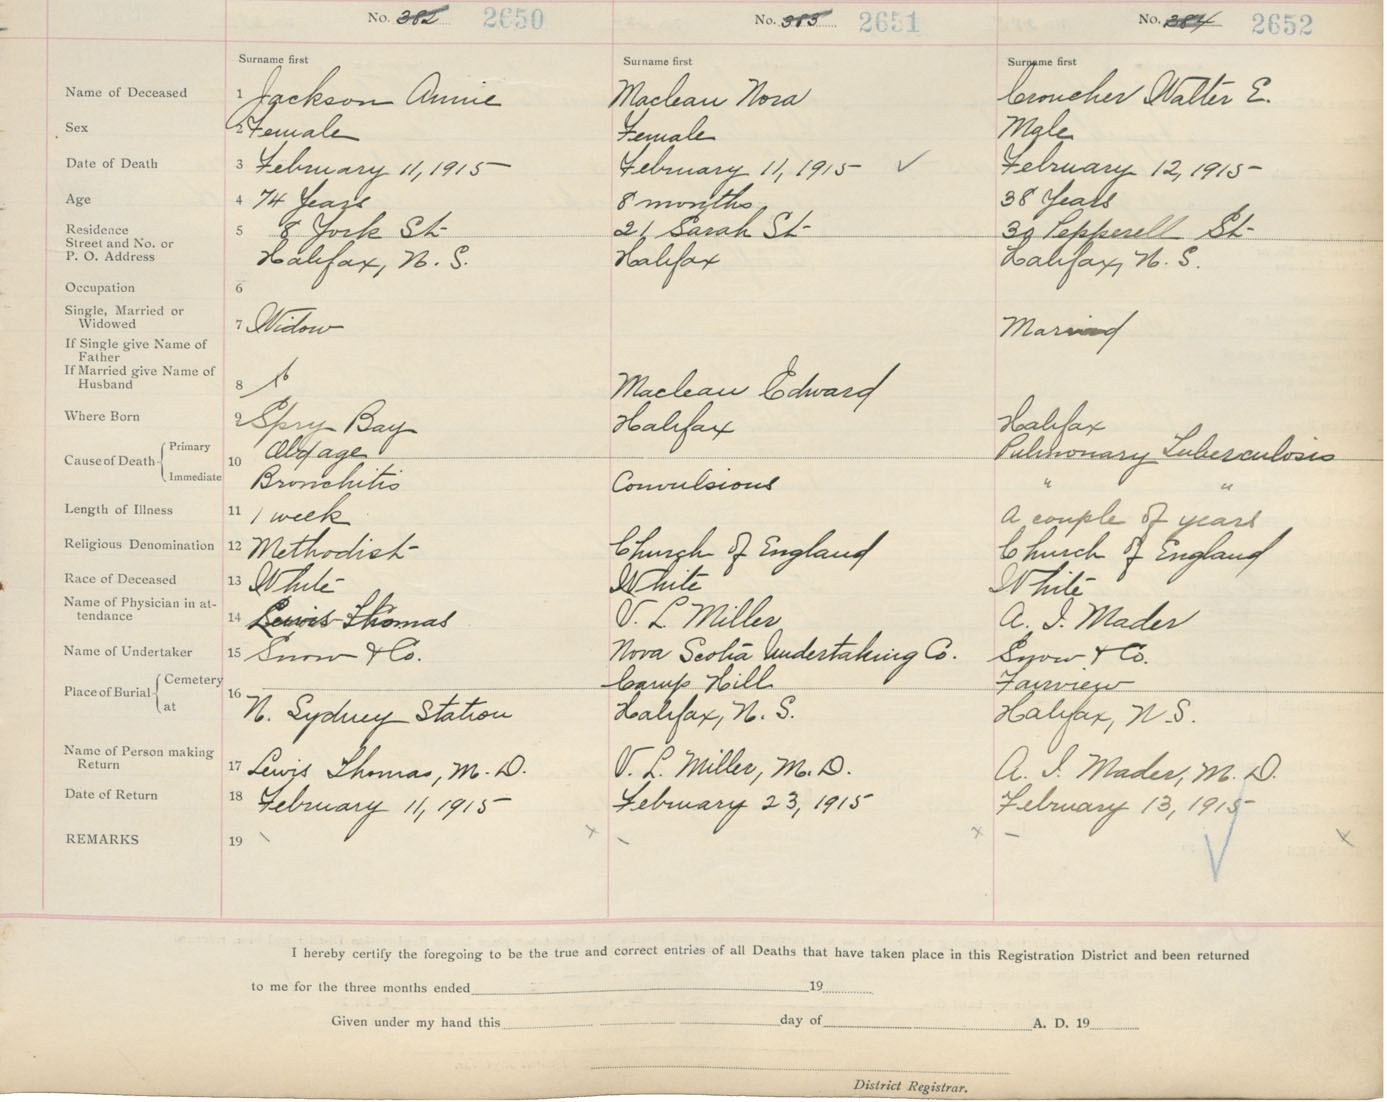 No. 382 2650 No. 383 2651 No. 384 2652
Surname first Surname first Surname first
Name of Deceased 1 Jackson Annie Maclean Nora Croucher Walter E.
Sex 2 Female Female Male
Date of Death 3 February 11, 1915 February 11, 1915 ✓ February 12, 1915
Age 4 74 Years 8 months 38 Years
Residence 5 8 York St 21 Sarah St 30 Pepperell St
Street and No. or
P. O. Address Halifax, N. S. Halifax Halifax, N. S.
Occupation 6
Single, Married or
Widowed 7 Widow Married
If Single give Name of
Father
If Married give Name of
Husband 8 Maclean Edward
Where Born 9 Spry Bay Halifax Halifax
Cause of Death Primary 10 Old age Pulmonary Tuberculosis
Immediate Bronchitis Convulsions " "
Length of Illness 11 1 week A couple of years
Religious Denomination 12 Methodist Church of England Church of England
Race of Deceased 13 White White White
Name of Physician in at-
tendance 14 Lewis Thomas V. L. Miller A. I. Mader
Name of Undertaker 15 Snow & Co. Nova Scotia Undertaking Co. Snow & Co.
Place of Burial Cemetery 16 Camp Hill Fairview
at N. Sydney Station Halifax, N. S. Halifax, N. S.
Name of Person making
Return 17 Lewis Thomas, M. D. V. L. Miller, M. D. A. I. Mader, M. D.
Date of Return 18 February 11, 1915 February 23, 1915 February 13, 1915
REMARKS 19 x x x
I hereby certify the foregoing to be the true and correct entries of all Deaths that have taken place in this Registration District and been returned
to me for the three months ended 19
Given under my hand this day of A. D. 19
District Registrar.